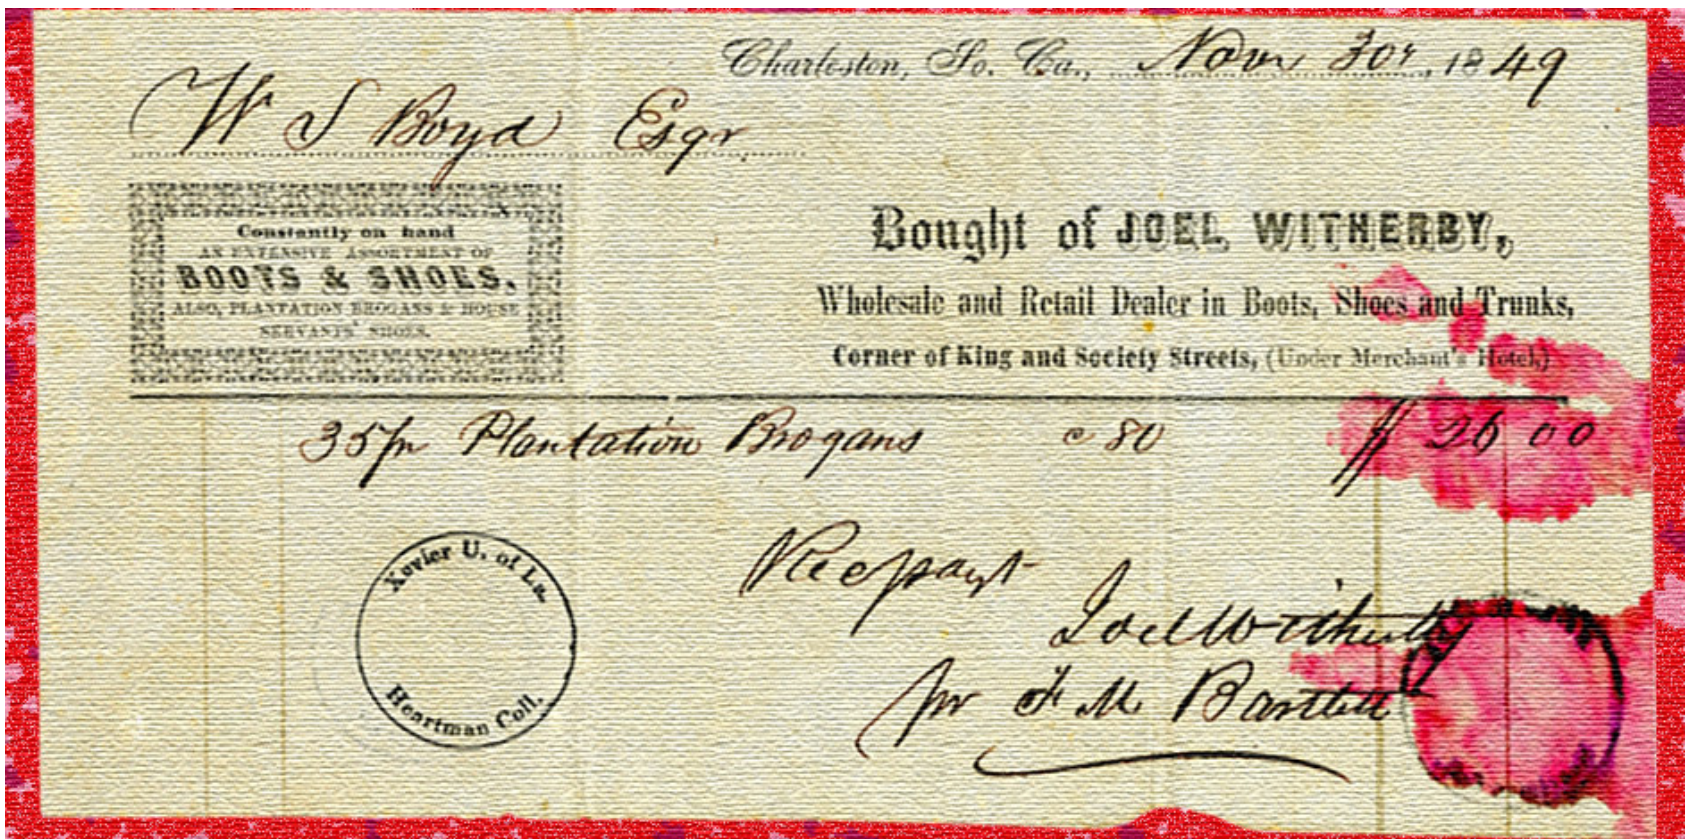 Charleston, So. Ca., Novr 30r, 1849
W S Boyd Esqr
Constantly on hand
AN EXTENSIVE ASSORTMENT OF
BOOTS & SHOES,
ALSO, PLANTATION BROGANS & HOUSE
SERVANTS' SHOES.
Bought of JOEL WITHERBY,
Wholesale and Retail Dealer in Boots, Shoes and Trunks,
Corner of King and Society Streets, (Under Merchant's Hotel,)
35 pr Plantation Brogans c 80 $ 26 00
Recpayt
Joel Witherby
pr F. M. Bartlett
Xavier U. of La.
Heartman Coll.